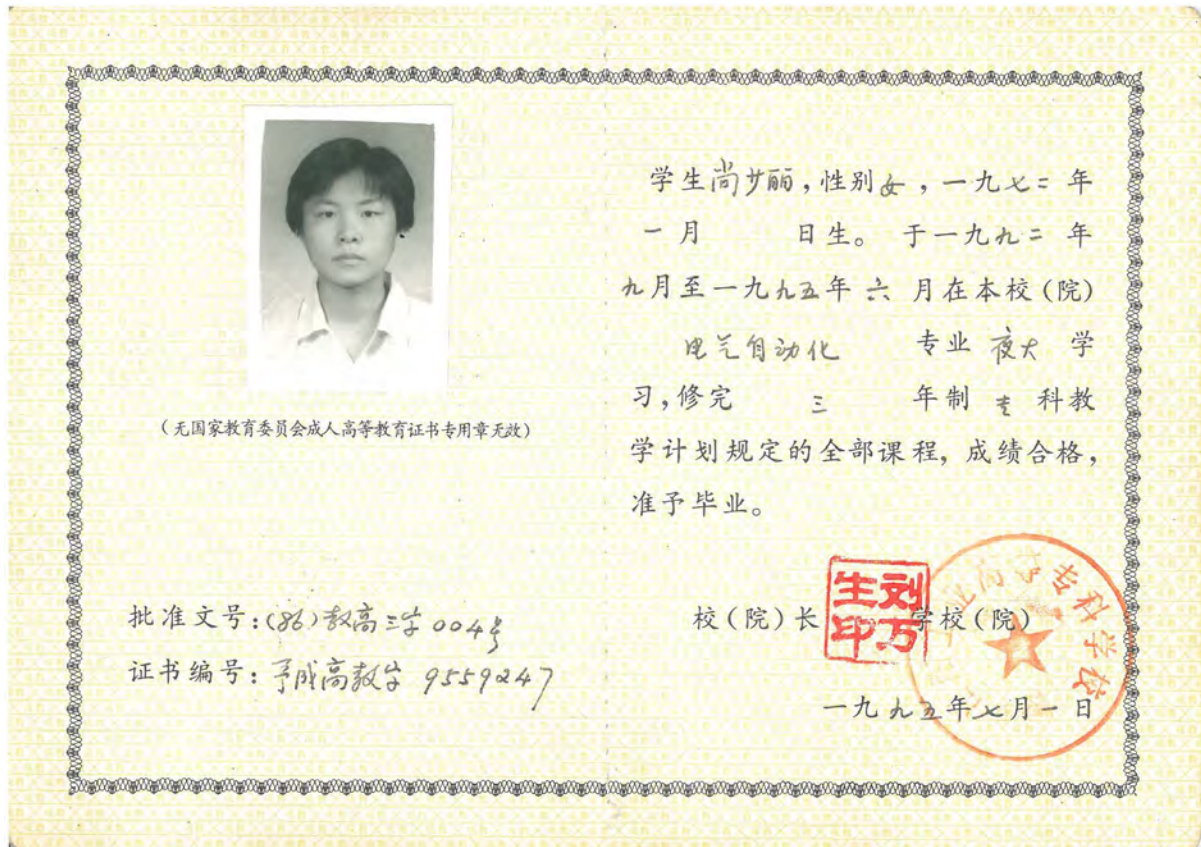 (无国家教育委员会成人高等教育证书专用章无效)
批准文号:(86)教高三字004号
证书编号:予成高教字 9559247
学生尚艹丽,性别女,一九七二年
一月 日生。于一九九二年
九月至一九九五年六月在本校(院)
电气自动化 专业 夜大 学
习,修完 三 年制 专 科教
学计划规定的全部课程,成绩合格,
准予毕业。
校(院)长 刘万生印 学校(院)
业高等专科学校
一九九五年七月一日